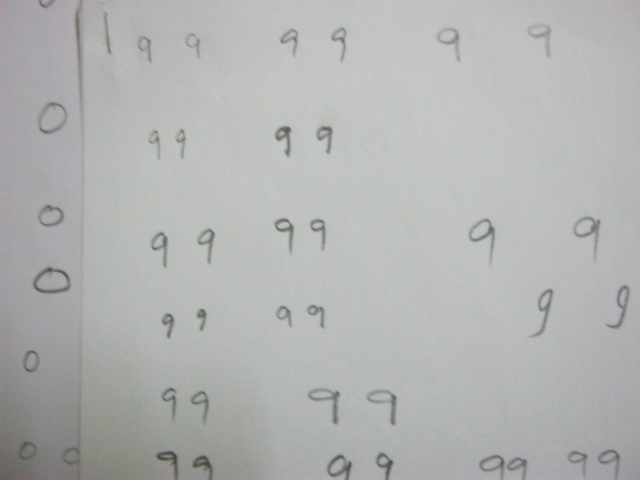 1 9 9 9 9 9 9
0 9 9 9 9
0 9 9 9 9 9 9
0 9 9 9 9 9 9
0 9 9 9 9
0 0 9 9 9 9 9 9 9 9